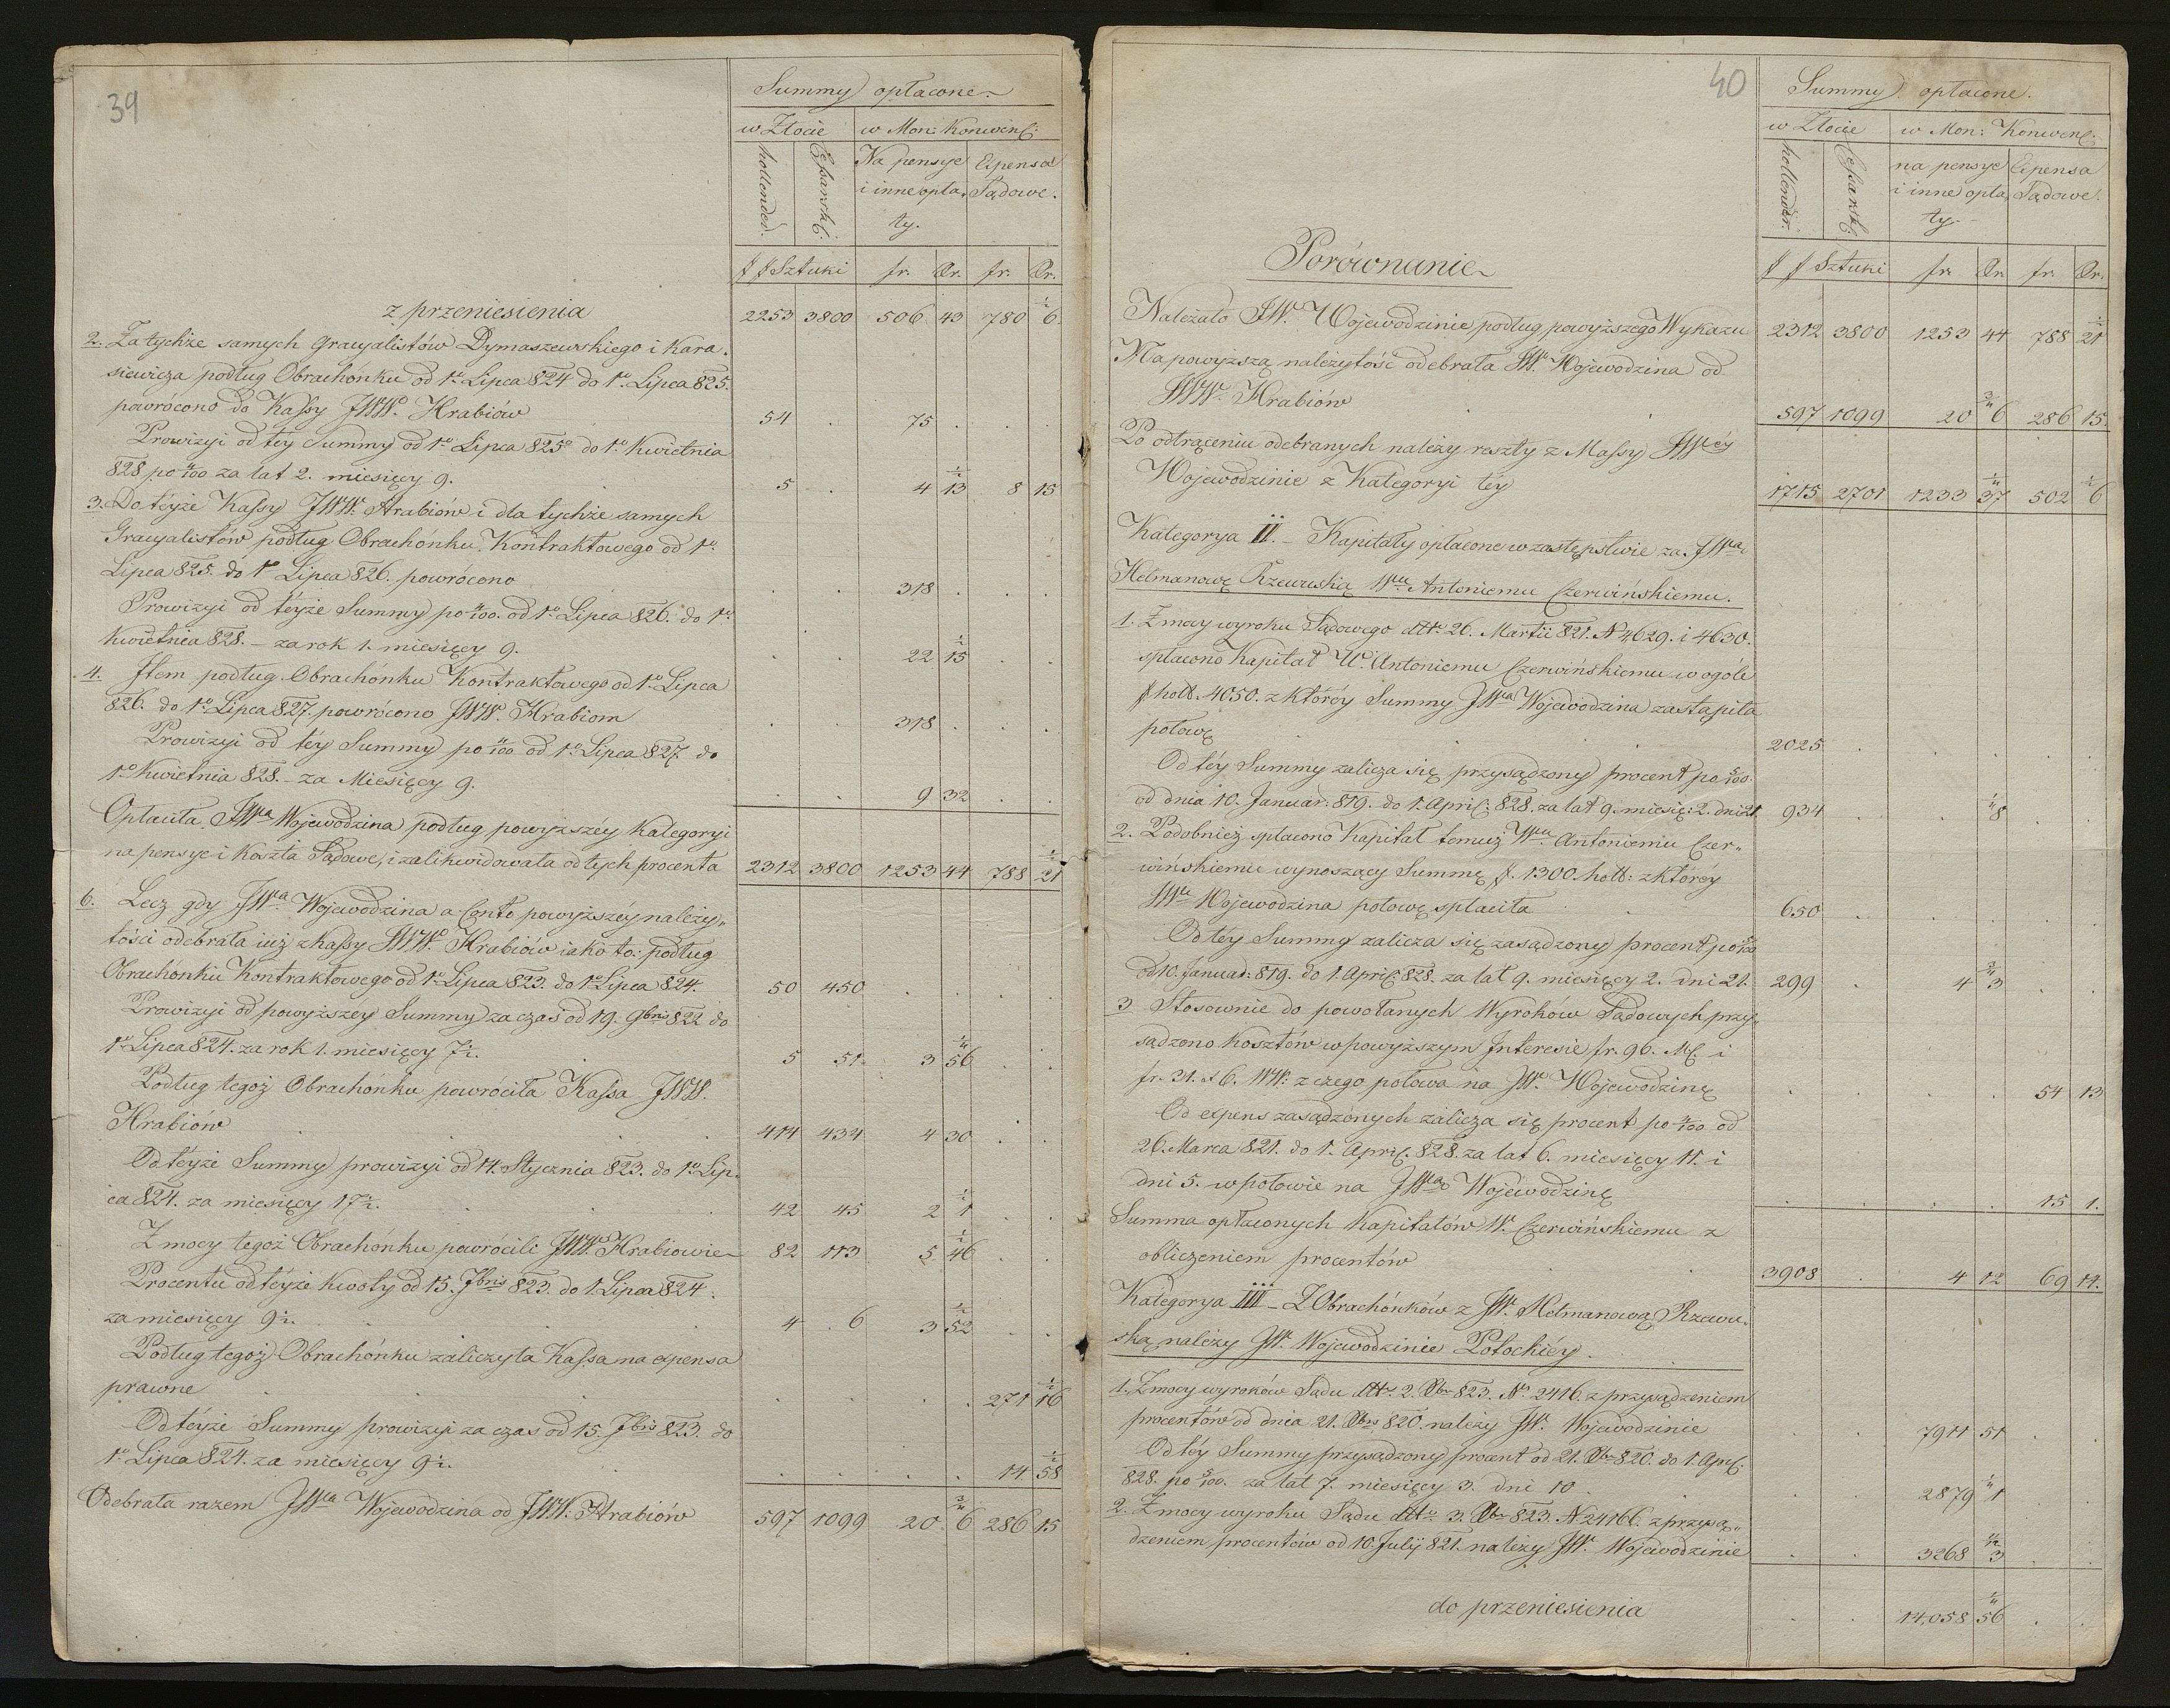 39
Summy opłacone
w Złocie w Mon: Konwenc:
hollender. Cesarsk:
Na pensye i inne opłaty.
Expensa Sądowe.
# # Sztuki fr. Xr. fr. Xr.
z przeniesienia 2253 3800 506 43 780 6 1/2
2. Za tychże samych Gracyalistów Dymaszewskiego i Kara-
siewicza podług Obrachónku od 1o Lipca 824 do 1o Lipca 825.
powrócono do Kassy JWW. Hrabiów 54 . 75 . . .
Prowizyi od tey Summy od 1o Lipca 825o do 1o Kwietnia
828 po 4/100 za lat 2. miesięcy 9. 5 . 4 13 1/2 8 15
3. Do téyże Kassy JWW. Hrabiów i dla tychże samych
Gracyalistów podług Obrachónku Kontraktowego od 1o
Lipca 825. do 1o Lipca 826. powrócono . . 318 . . .
Prowizyi od téyże Summy po 4/100. od 1o Lipca 826. do 1o
Kwietnia 828. – za rok 1. miesięcy 9. . . 22 15 1/2 . .
4. Item podług Obrachónku Kontraktowego od 1o Lipca
826. do 1o Lipca 827. powrócono JWW. Hrabiom . . 318 . . .
Prowizyi od téy Summy po 4/100 od 1o Lipca 827. do
1o Kwietnia 828. – za Miesięcy 9. . . 9 32 . .
Opłaciła JWa Wojewodzina podług powyższéy Kategoryi
na pensye i Koszta Sądowe, i zalikwidowała od tych procenta 2312 3800 1253 44 788 21 1/2
6. Lecz gdy JWa Wojewodzina a Conto powyższéy należy-
tości odebrała iuż z Kassy JWW. Hrabiów iako to: podług
Obrachónku Kontraktowego od 1o Lipca 823. do 1o Lipca 824. 50 450 . . . .
Prowizyi od powyższey Summy za czas od 19. 9bris 822 do
1o Lipca 824. za rok 1. miesięcy 7 1/2. 5 51 3 56 1/4 . .
Podług tegoż Obrachónku powróciła Kassa JWW.
Hrabiów 414 434 4 30 . .
Od téyże Summy prowizyi od 14. Stycznia 823. do 1o Lip-
ca 824. za miesięcy 17 1/2. 42 45 2 1 1/2 . .
Z mocy tegoż Obrachónku powrócili JWW. Hrabiowie 82 113 5 46 1/2 . .
Procentu od téyże kwoty od 15. 7bris 823. do 1. Lipca 824.
za miesięcy 9 1/2. 4 6 3 52 1/2 . .
Podług tegoż Obrachónku zaliczyła Kassa na expensa
prawne . . . . 271 16 1/2
Od téyże Summy prowizyi za czas od 15. 7bris 823. do
1o Lipca 824. za miesięcy 9 1/2. . . . . 14 58 1/2
Odebrała razem JWa Wojewodzina od JWW. Hrabiów 597 1099 20 6 3/4 286 15
40
Summy opłacone.
w Złocie w Mon: Konwenc:
hollender: Cesarsk:
na pensye i inne opłaty.
Expensa Sądowe.
# # Sztuki fr. Xr. fr. Xr.
Porównanie
Należało JW. Wojewodzinie podług powyższego Wykazu 2312 3800 1253 44 788 21 1/2
Na powyższą należytość odebrała JW. Wojewodzina od
JWW. Hrabiów 597 1099 20 6 3/4 286 15.
Po odtrąceniu odebranych należy reszty z Massy JWéy
Wojewodzinie z Kategoryi téy 1715 2701 1233 37 1/4 502 6 1/2
Kategorya II. – Kapitały opłacone w zastępstwie za JWą
Hetmanowę Rzewuską Wu Antoniemu Czerwińskiemu.
1. Z mocy wyroku Sądowego ddto 26. Martii 821. N 4629. i 4630.
spłacono Kapitał W. Antoniemu Czerwińskiemu w ogóle
# holl. 4050. z któréy Summy JWa Wojewodzina zastąpiła
połowę 2025 . . . . .
Od téy Summy zalicza się przysądzony procent po 5/100.
od dnia 10. Januar: 819. do 1. April: 828. za lat 9. miesię: 2. dni 21. 934 . . 8 1/4 . .
2. Podobnież spłacono Kapitał temuż Wu Antoniemu Czer-
wińskiemu wynoszący Summę #. 1300. holl: z któréy
JWa Wojewodzina połowę spłaciła 650 . . . . .
Od téy Summy zalicza się zasądzony procent po 5/100
od 10. Januar: 819. do 1. April: 828. za lat 9. miesięcy 2. dni 21. 299 . 4 3 3/4 . .
3 Stosownie do powołanych Wyroków Sądowych przy-
sądzono kosztów w powyższym Interesie fr. 96. MC. i
fr. 31. x 6. WW: z czego połowa na JW. Wojewodzinę . . . . 54 13
Od expens zasądzónych zalicza się procent po 4/100 od
26. Marca 821. do 1. April. 828. za lat 6. miesięcy 11. i
dni 5. w połowie na JWą Wojewodzinę . . . . 15 1.
Summa opłaconych Kapitałów W. Czerwińskiemu z
obliczeniem procentów 3908 . 4 12 69 14.
Kategorya III – Z Obrachónków z JW. Hetmanową Rzewu-
ską należy JW. Wojewodzinie Potockiéy.
1. Z mocy wyroków Sądu ddto 2. Xbr 823. No 2416. z przysądzeniem
procentów od dnia 21. Xbris 820. należy JW. Wojewodzinie . . 7911 51 . .
Od téy Summy przysądzony procent od 21. Xbr 820. do 1. Apr.
828. po 5/100. za lat 7. miesięcy 3. dni 10 . . 2879 1 1/4 . .
2. Z mocy wyroku Sądu ddto 3. Xbr 823. N 24166. z przysą-
dzeniem procentów od 10. Julij 821. należy JW. Wojewodzinie . . 3268 3 . .
do przeniesienia . . 14,058 56 1/4 . .